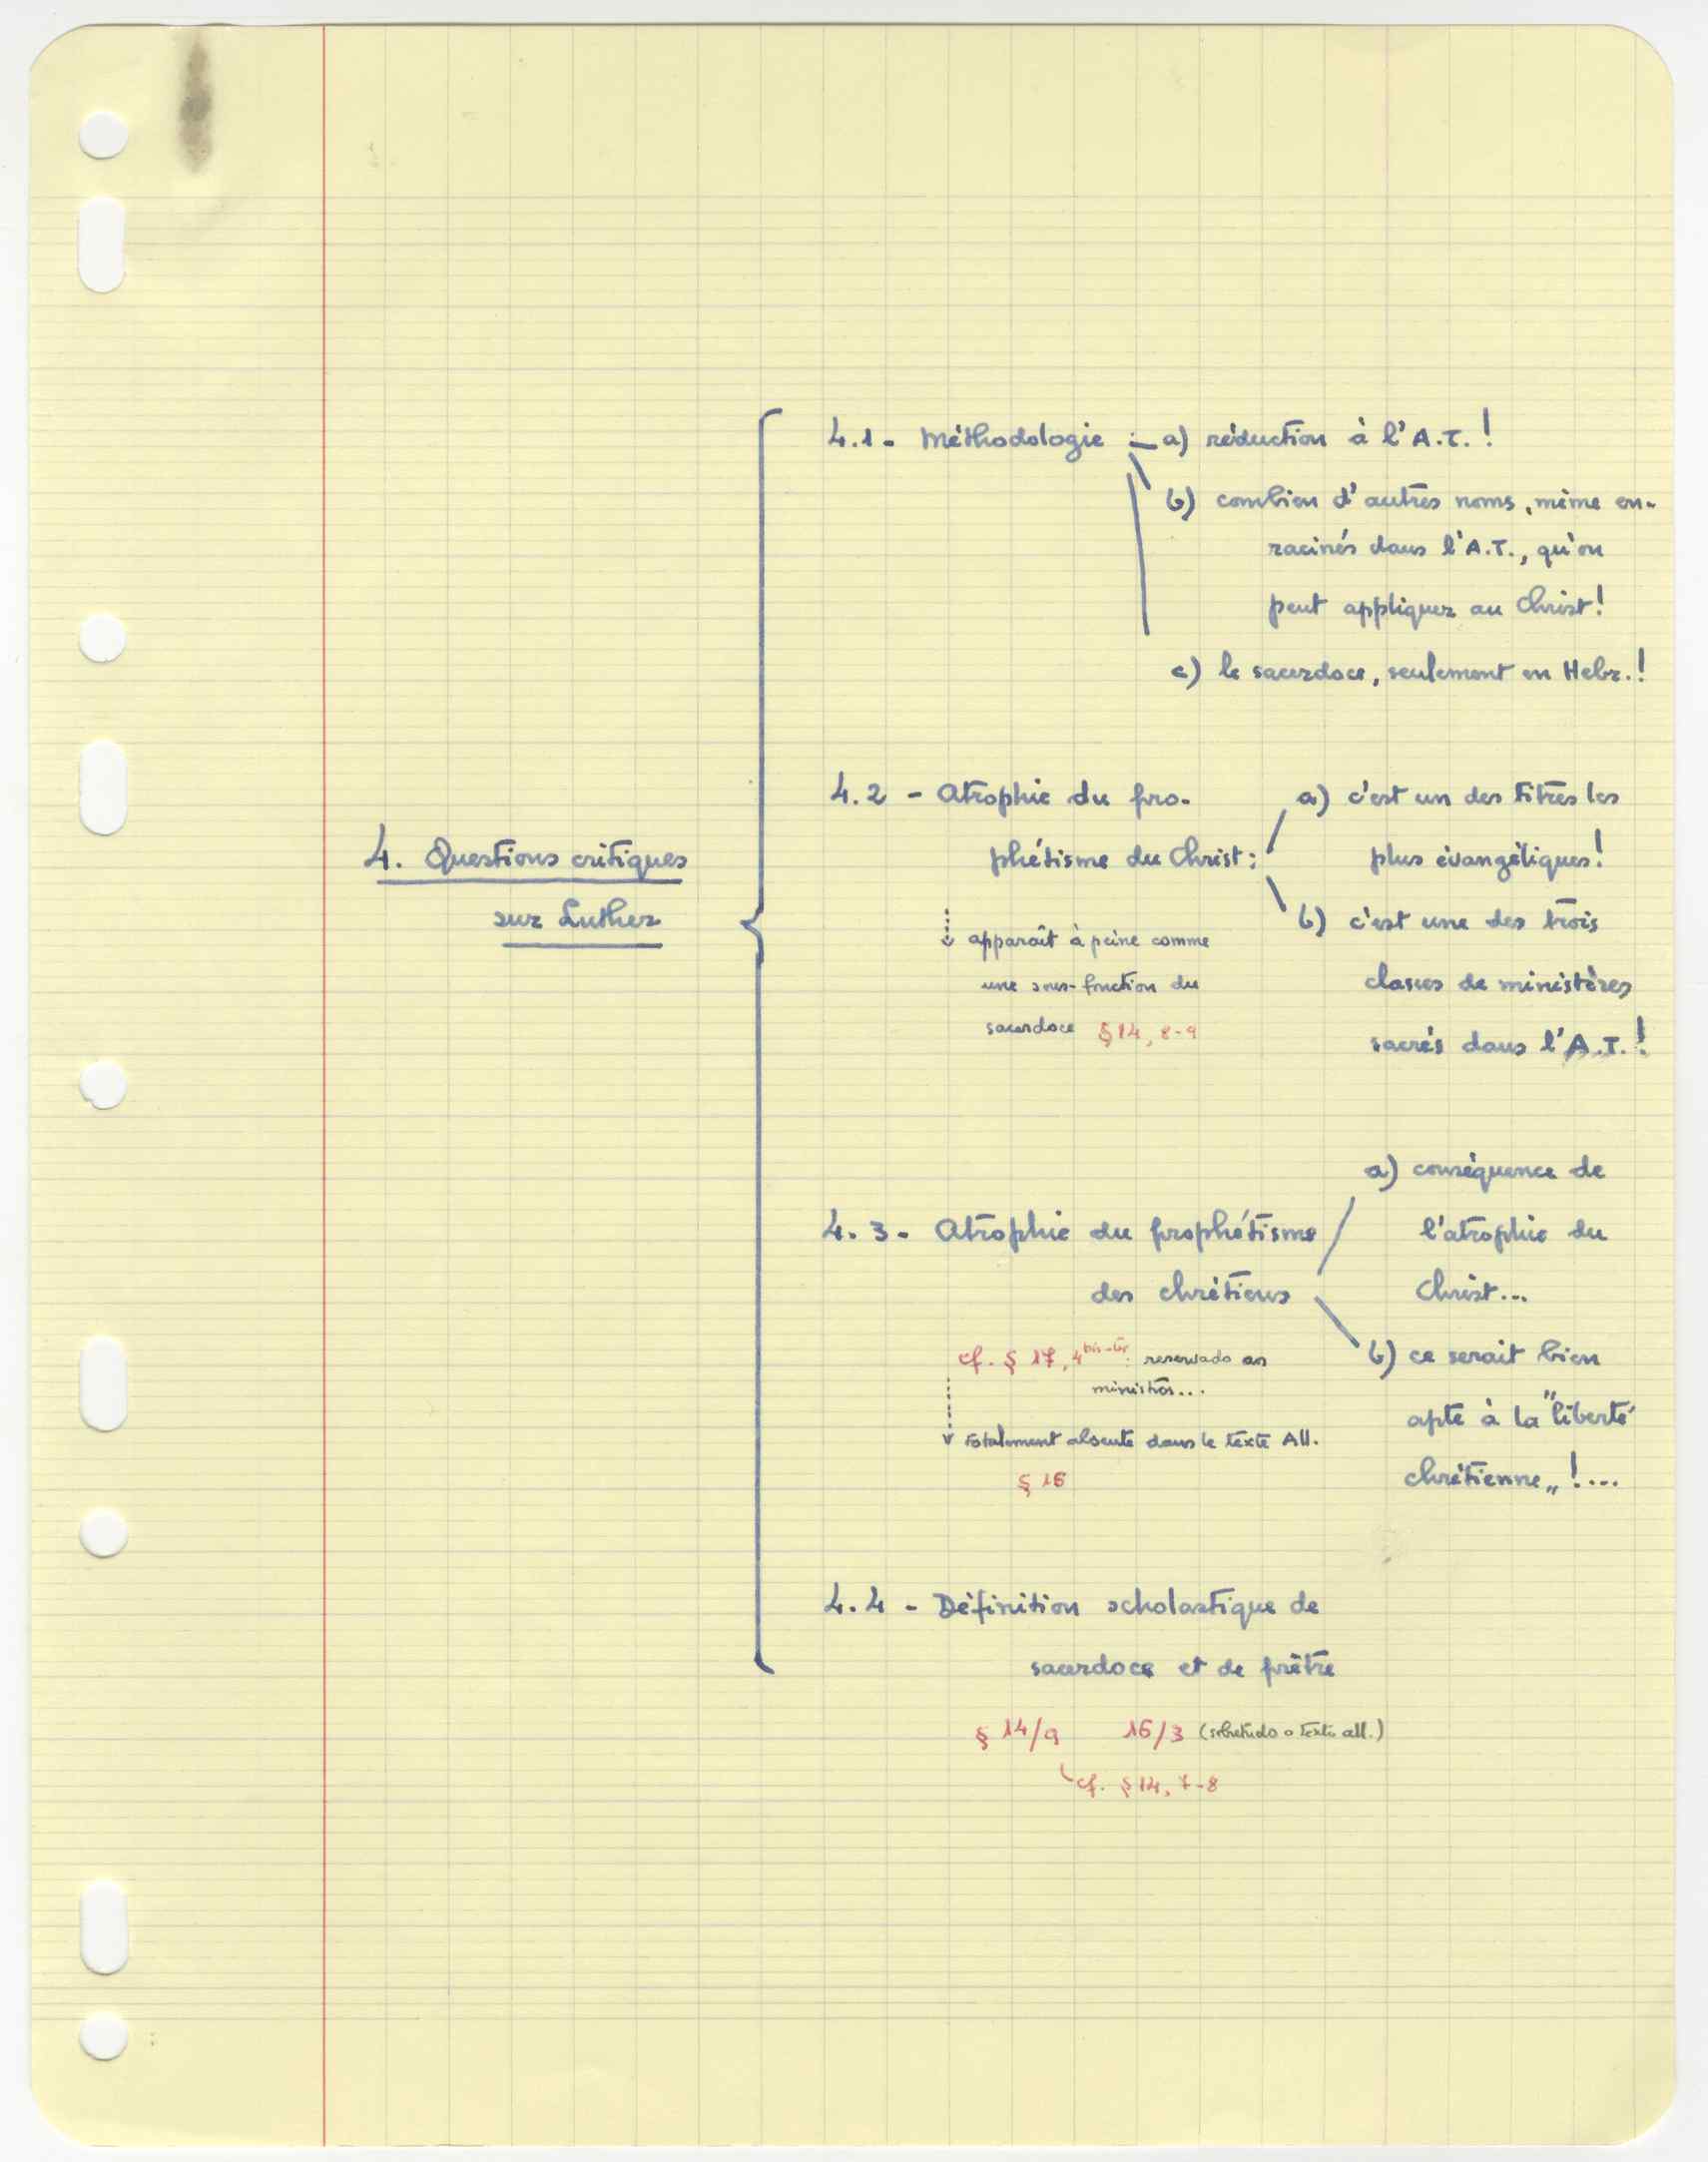 4. Questions critiques
sur Luther
4.1 - Méthodologie : a) réduction à l'A.T. !
b) combien d'autres noms, même en-
racinés dans l'A.T., qu'on
peut appliquer au Christ !
c) le sacerdoce, seulement en Hebr. !
4.2 - Atrophie du pro-
phétisme du Christ :
apparaît à peine comme
une sous-fonction du
sacerdoce § 14, 8-9
a) c'est un des titres les
plus évangéliques !
b) c'est une des trois
classes de ministères
sacrés dans l'A.T. !
4.3 - Atrophie du prophétisme
des chrétiens
cf. § 17, 4 bis-ter : reservado aos
ministros...
totalement absente dans le texte All.
§ 16
a) conséquence de
l'atrophie du
Christ...
b) ce serait bien
apte à la "liberté
chrétienne„ !...
4.4 - Définition scholastique de
sacerdoce et de prêtre
§ 14/9 16/3 (sobretudo o texto all.)
cf. § 14, 7-8